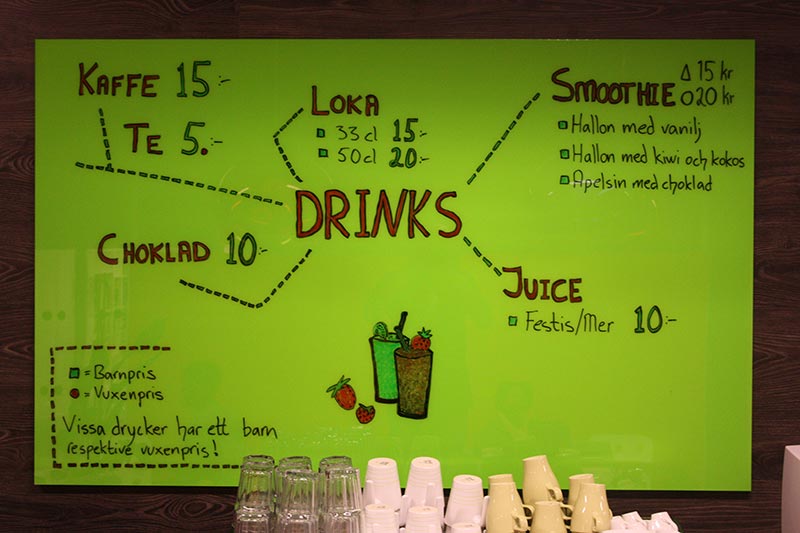 KAFFE 15:-
TE 5.-
LOKA
33cl 15:-
50cl 20:-
SMOOTHIE
Δ 15 kr
O 20 kr
Hallon med vanilj
Hallon med kiwi och kokos
Apelsin med choklad
DRINKS
CHOKLAD 10:-
JUICE
Festis/Mer 10:-
= Barnpris
= Vuxenpris
Vissa drycker har ett barn
respektive vuxenpris!